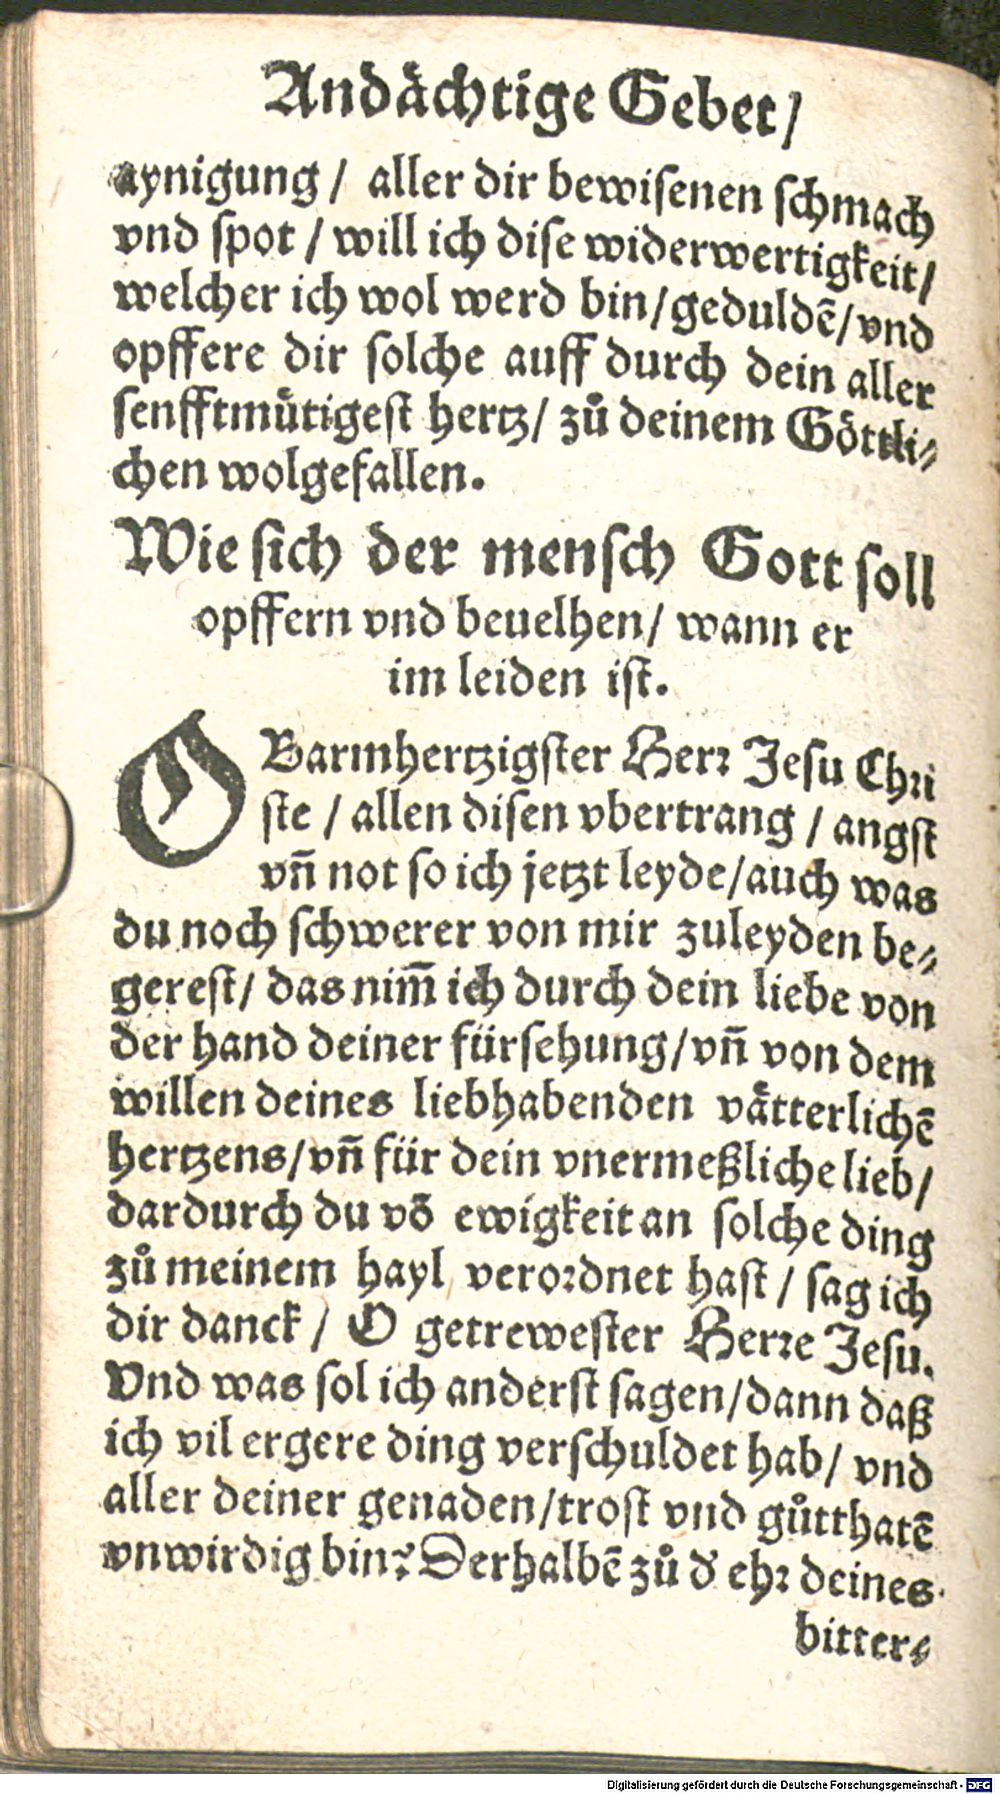 Andaͤchtige Gebet/
aynigung/ aller dir bewisenen schmach
vnd spot / will ich dise widerwertigkeit/
welcher ich wol werd bin/geduldē/vnd
opffere dir solche auff durch dein aller
senfftmuͤtigest hertz/ zuͦ deinem Goͤttli⸗
chen wolgefallen.
Wie sich der mensch Gott soll
opffern vnd beuelhen/ wann er
im leiden ist.
O Barmhertzigster Herr Jesu Chri
ste / allen disen vbertrang / angst
vñ not so ich jetzt leyde/auch was
du noch schwerer von mir zuleyden be⸗
gerest/ das nim̄ ich durch dein liebe von
der hand deiner fürsehung/vñ von dem
willen deines liebhabenden vaͤtterlichē
hertzens/vñ für dein vnermeßliche lieb/
dardurch du vō ewigkeit an solche ding
zuͦ meinem hayl verordnet hast / sag ich
dir danck / O getrewester Herre Jesu.
Vnd was sol ich anderst sagen/dann daß
ich vil ergere ding verschuldet hab/ vnd
aller deiner genaden/trost vnd guͦtthatē
vnwirdig bin? Derhalbē zuͦ d' ehr deines
bitter⸗
Digitalisierung gefördert durch die Deutsche Forschungsgemeinschaft - DFG